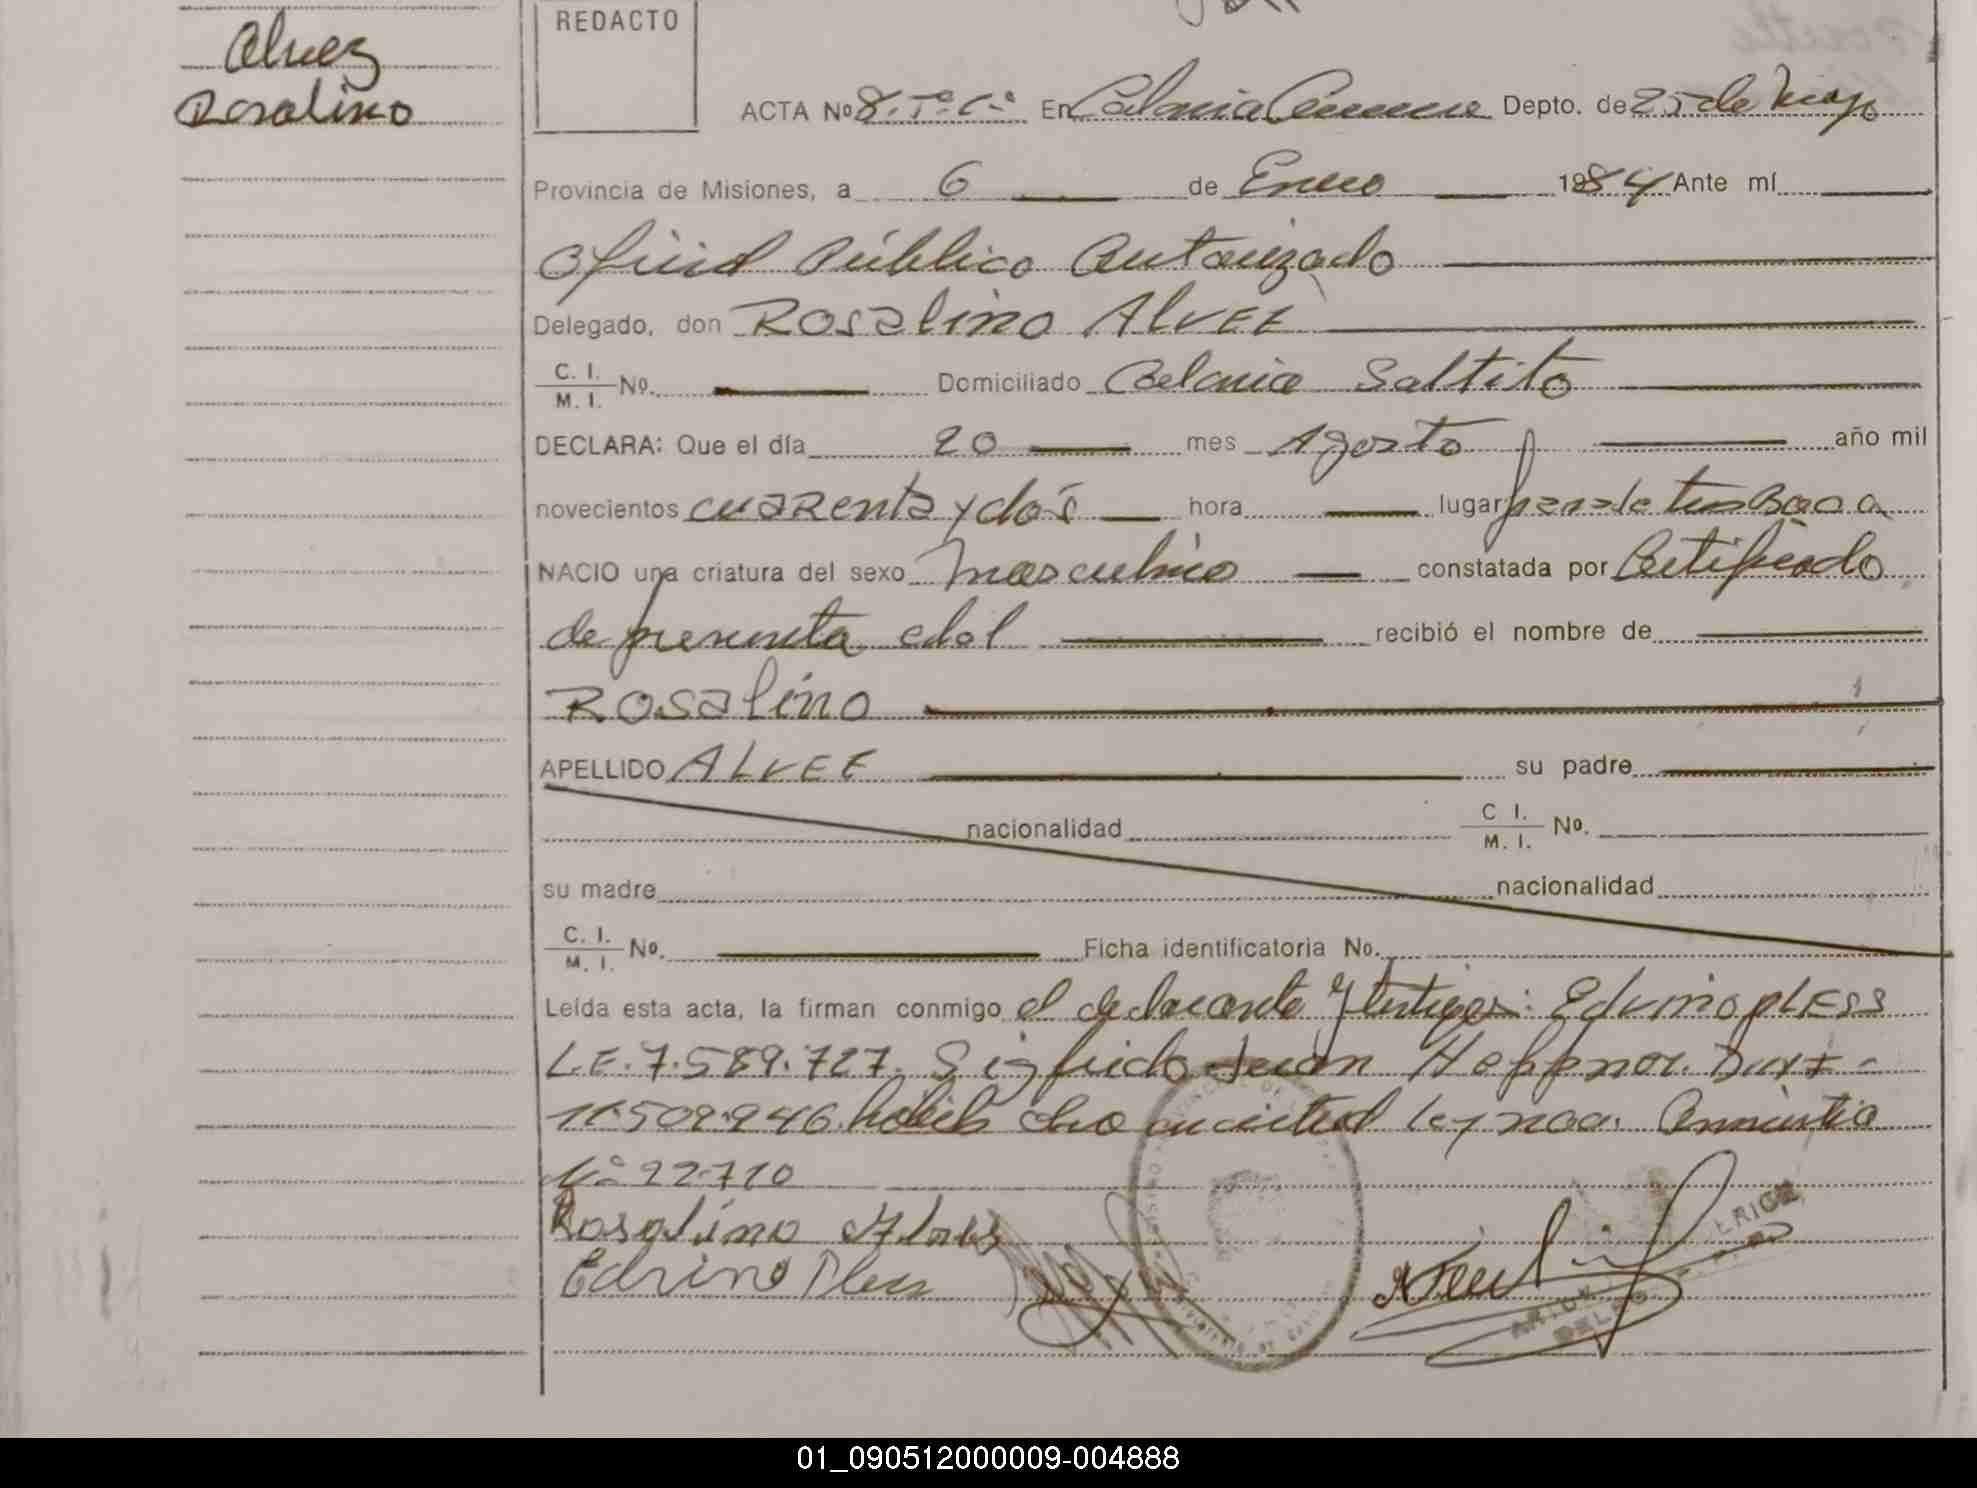 Alvez
Rosalino
REDACTO
ACTA Nº 8. Tº 1º En Colonia Depto. de 25 de Mayo
Provincia de Misiones, a 6 de Enero 1984 Ante mí
Oficial Público Autorizado
Delegado, don Rosalino Alvez
C. I.
M. I. Nº. Domiciliado Colonia Saltito
DECLARA: Que el día 20 mes Agosto año mil
novecientos cuarenta y dos hora lugar
NACIO una criatura del sexo masculino constatada por Certificado
de presunta edad recibió el nombre de
Rosalino
APELLIDO ALVEZ su padre
nacionalidad C. I.
M. I. Nº.
su madre nacionalidad
C. I.
M. I. Nº. Ficha identificatoria No.
Leída esta acta, la firman conmigo el declarante y testigos: Edvino pless
L.E. 7.589.727. Sigfrido Juan Heppner.
11.509.946. ley nac. Amnistia
Nº 22710
Rosalino Alves
Edvino Pless
01_090512000009-004888